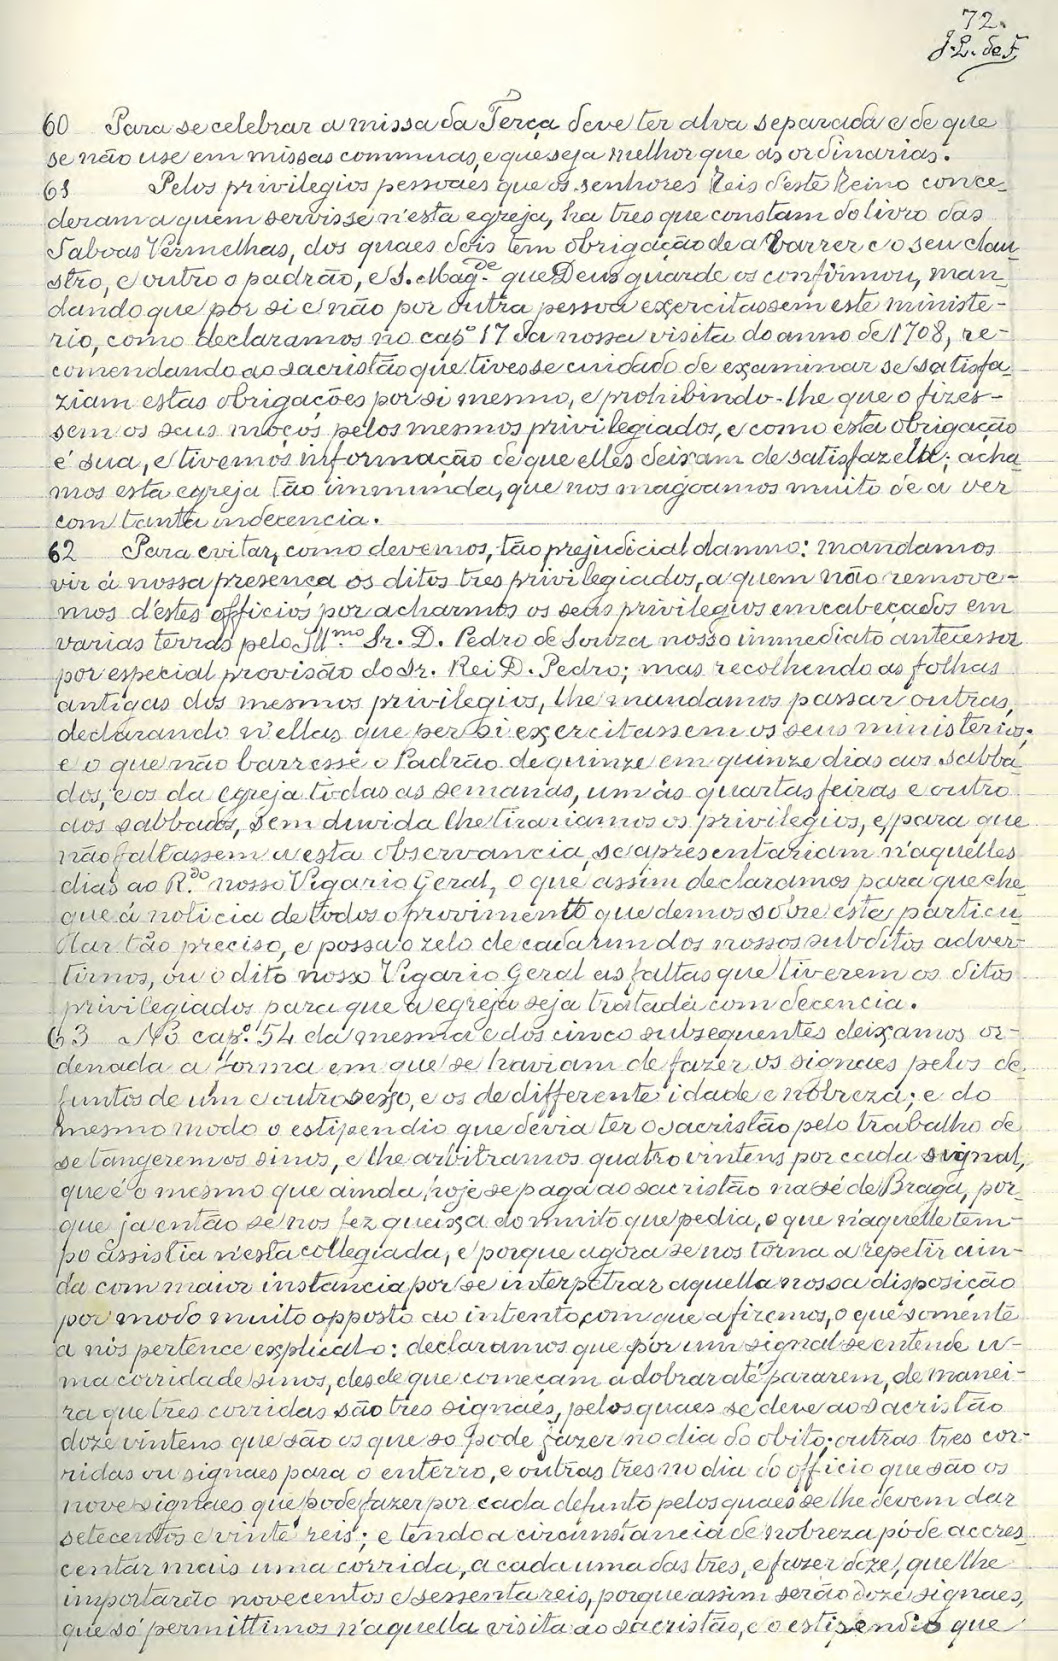 72.
J. L. de F.
60 Para se celebrar a missa da Terça deve ter alva separada e de que
se não use em missas communas, e que seja melhor que as ordinarias.
61 Pelos privilegios pessoaes que os senhores Reis d'este Reino conce-
deram a quem servisse n'esta egreja, ha tres que constam do livro das
Taboas Vermelhas, dos quaes dois tem obrigação de a varrer e o seu clau-
stro, e outro o padrão, e S. Mag.de que Deus guarde os confirmou, man-
dando que por si e não por outra pessoa exercitassem este ministe-
rio, como declaramos no cap.o 17 da nossa visita do anno de 1708, re-
comendando ao sacristão que tivesse cuidado de examinar se satisfa-
ziam estas obrigações por si mesmo, e prohibindo-lhe que o fizes-
sem os seus moços pelos mesmos privilegiados, e como esta obrigação
é sua, e tivemos informação de que elles deixam de satisfazelle; acha-
mos esta egreja tão immunda, que nos magoamos muito de a ver
com tanta indecencia.
62 Para evitar, como devemos, tão prejudicial damno: mandamos
vir á nossa presença os ditos tres privilegiados, a quem não remove-
mos d'estes officios por acharmos os seus privilegios emcabeçados em
varias terras pelo Ill.mo Sr. D. Pedro de Souza nosso immediato antecessor
por especial provisão do Sr. Rei D. Pedro; mas recolhendo as folhas
antigas dos mesmos privilegios, lhe mandamos passar outras,
declarando n'ellas que per si exercitassem os seus ministerios;
e o que não barresse o Padrão de quinze em quinze dias aos sabba-
dos, e os da egreja todas as semanas, um ás quartas feiras e outro
aos sabbados, sem duvida lhe tirariamos os privilegios, e, para que
não faltassem n'esta observancia, se apresentariam n'aquelles
dias ao R.do nosso Vigario Geral, o que assim declaramos para que che-
gue á noticia de todos o provimento que demos sobre este particu-
lar tão preciso, e possa o zelo de cada um dos nossos subditos adver-
tirnos, ou o dito nosso Vigario Geral as faltas que tiverem os ditos
privilegiados para que a egreja seja tratada com decencia.
63 No cap.o 54 da mesma e dos cinco subsequentes deixamos or-
denada a forma em que se haviam de fazer os signaes pelos de-
funtos de um e outro sexo, e os de differente idade e nobreza; e do
mesmo modo o estipendio que devia ter o sacristão pelo trabalho de
se tangerem os sinos, e lhe arbitramos quatro vintens por cada signal,
que é o mesmo que ainda hoje se paga ao sacristão na sé de Braga, por-
que ja então se nos fez queixa do muito que pedia, o que n'aquelle tem-
po assistia n'esta collegiada, e porque agora se nos torna a repetir ain-
da com maior instancia por se interpetrar aquella nossa disposição
por modo muito opposto ao intento com que a fizemos, o que somente
a nós pertence explical-o: declaramos que por um signal se entende u-
ma corrida de sinos, desde que começam a dobrar até pararem, de manei-
ra que tres corridas são tres signaes, pelos quaes se deve ao sacristão
doze vintens que são os que só pode fazer no dia do obito; outras tres cor-
ridas ou signaes para o enterro, e outras tres no dia do officio que são os
nove signaes que pode fazer por cada defunto pelos quaes se lhe devem dar
setecentos e vinte reis; e tendo a circumstancia de nobreza póde accres-
centar mais uma corrida, a cada uma das tres, e fazer doze, que lhe
importarão novecentos e sessenta reis, porque assim serão doze signaes,
que só permittimos n'aquella visita ao sacristão, e o estipendio que